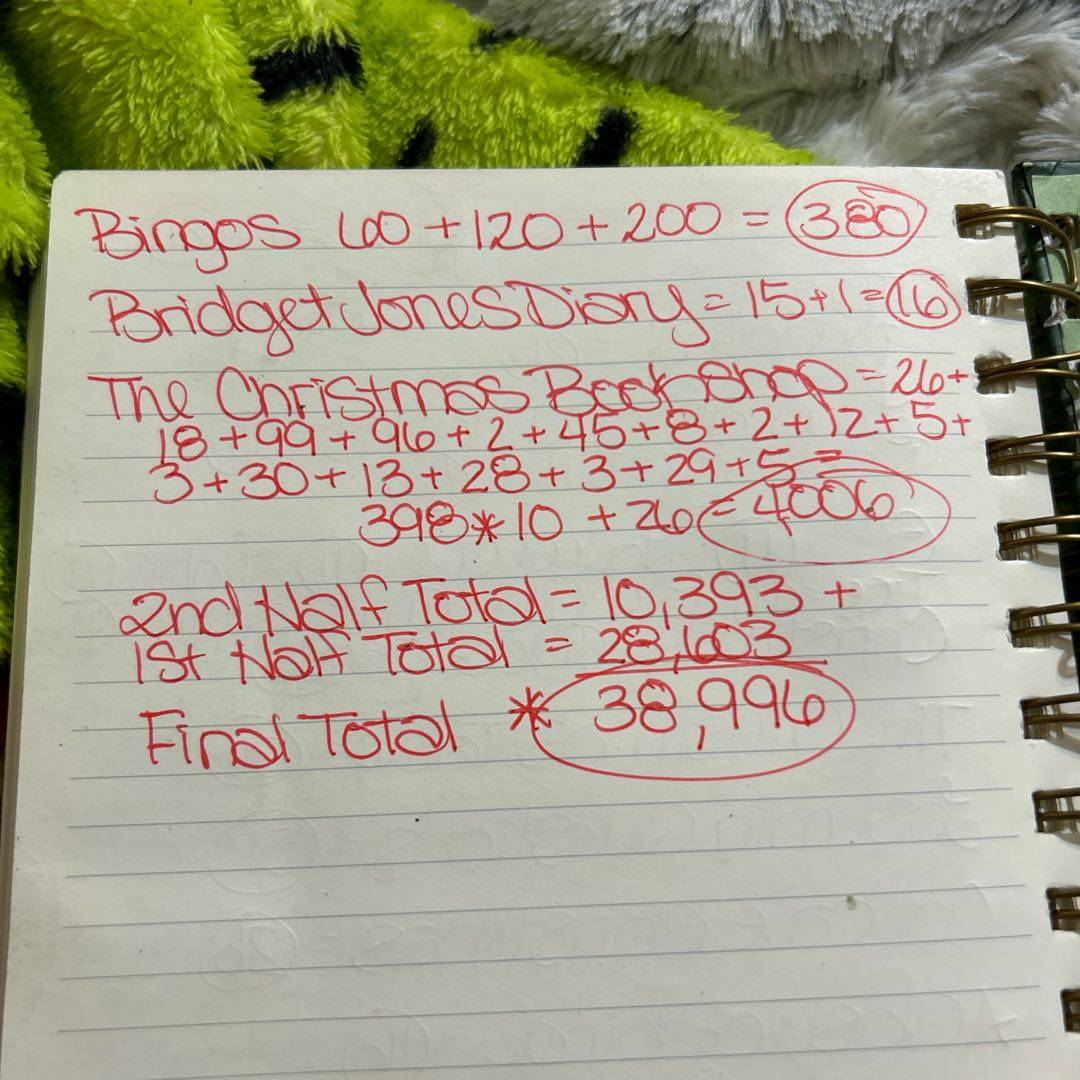 Bingos 60 + 120 + 200 = 380
Bridget Jones Diary = 15 + 1 = 16
The Christmas Bookshop = 26 +
18 + 99 + 96 + 2 + 45 + 8 + 2 + 12 + 5 +
3 + 30 + 13 + 28 + 3 + 29 + 5 =
398 * 10 + 26 = 4006
2nd Half Total = 10,393 +
1st Half Total = 28,603
Final Total * 38,996